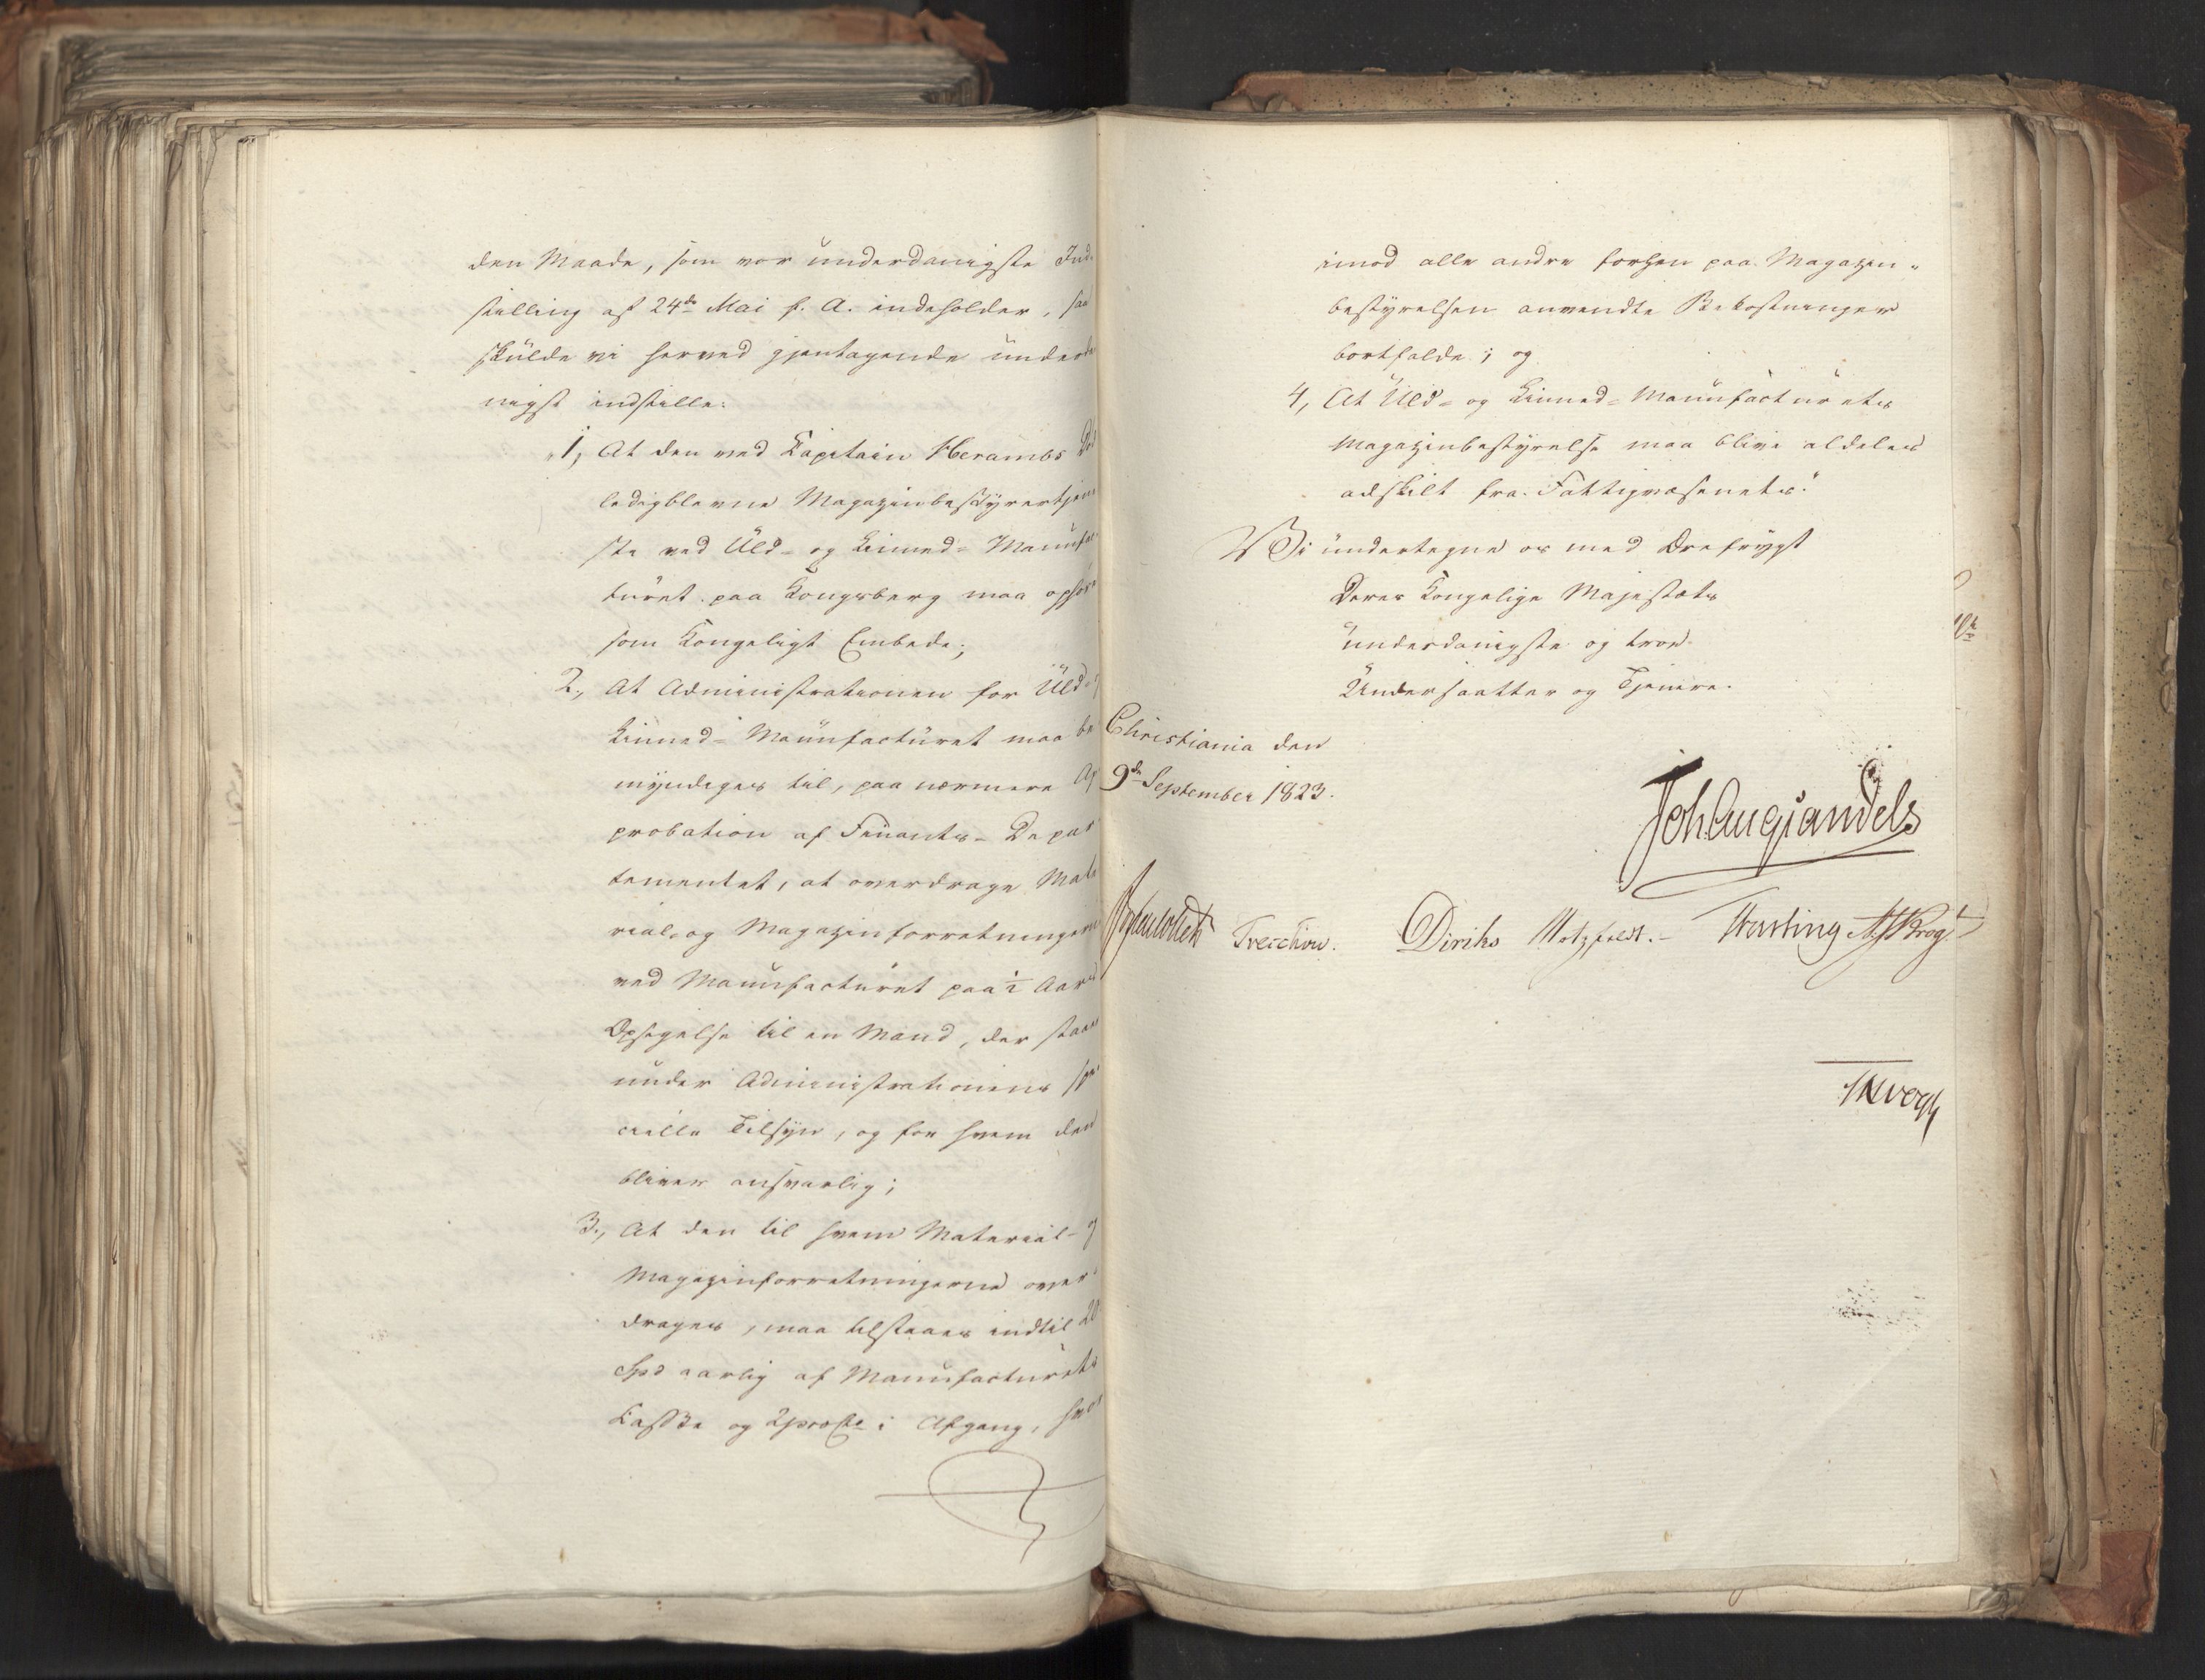 den Maade, som vor underdanigste Ind-
stilling af 24de Mai s. A. indeholder, saa
skulde vi herved gjentagende underda
nigst indstille:
"1, At den ved Kapitain Herambs Død
ledigblevne Magazinbestyrertjene
ste ved Uld- og Linned-Manufac
turet paa Kongsberg maa ophøre
som Kongeligt Embede;
2., At Administrationen for Uld- og
Linned-Manufacturet maa be
myndiges til, paa nærmere Ap
probation af Finants-Depar
tementet, at overdrage Mate
rial- og Magazinforretningerne
ved Manufacturet paa ½ Aars
Opsigelse til en Mand, der staaer
under Administrationens spe
cielle Tilsyn, og for hvem den
bliver ansvarlig;
3., At den til hvem Material- og
Magazinforretningerne over-
drages, maa tilstaaes indtil
Spd aarlig af Manufacturets
Kasse og i Afgang, hvor
imod alle andre forhen paa Magazin-
bestyrelsen anvendte Bekostninger
bortfalde; og
4, At Uld- og Linned-Manufacturets
Magazinbestyrelse maa blive aldeles
adskilt fra Fattigvæsenets."
Vi undertegne os med Ærefrygt
Deres Kongelige Majestæts
underdanigste og troe
Undersaatter og Tjenere.
Christiania den
9de September 1823.
Joh Aug Sandels
Jonas Collett Treschow. Diriks Motzfeldt.- Fasting